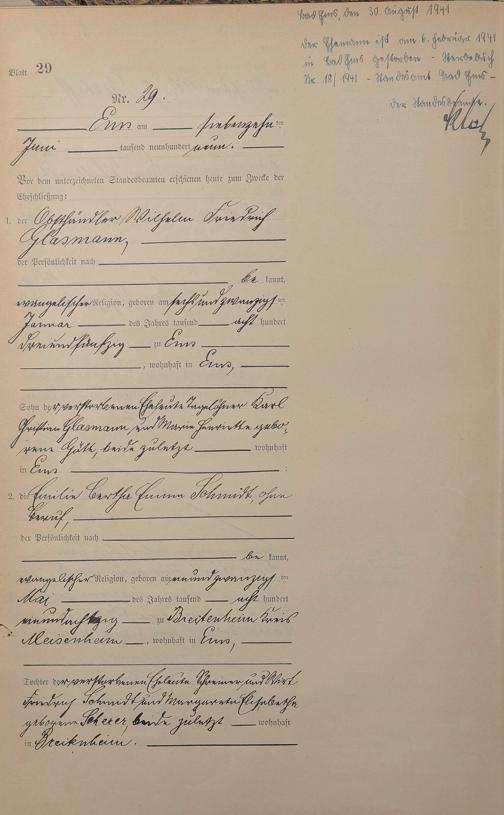 Blatt 29
Bad Ems, den 30. August 1941
Der Ehemann ist am 6. Februar 1941
in Bad Ems gestorben - Sterbebuch
Nr. 18/1941 - Standesamt Bad Ems -
Der Standesbeamte.
Nr. 29.
Ems am siebenzehnten
Juni tausend neunhundert neun.
Vor dem unterzeichneten Standesbeamten erschienen heute zum Zwecke der
Eheschließung:
1. der Obsthändler Wilhelm Friedrich
Glasmann,
der Persönlichkeit nach
be kannt,
evangelischer Religion, geboren am sechsundzwanzigsten
Januar des Jahres tausend acht hundert
dreiundfünfzig zu Ems
, wohnhaft in Ems,
Sohn der verstorbenen Eheleute Tagelöhner Karl
Christian Glasmann und Marie Henriette gebo-
rene Güll, beide zuletzt wohnhaft
in Ems.
2. die Emilie Bertha Emma Schmidt, ohne
Beruf,
der Persönlichkeit nach
be kannt,
evangelischer Religion, geboren am neunundzwanzigsten
Mai des Jahres tausend acht hundert
zu Breitenheim Kreis
Meisenheim, wohnhaft in Ems,
Tochter der verstorbenen Eheleute und Wirt
Friedrich Schmidt und Margaretha Elisabethe
geborene Scherer, beide zuletzt wohnhaft
in Breitenheim.